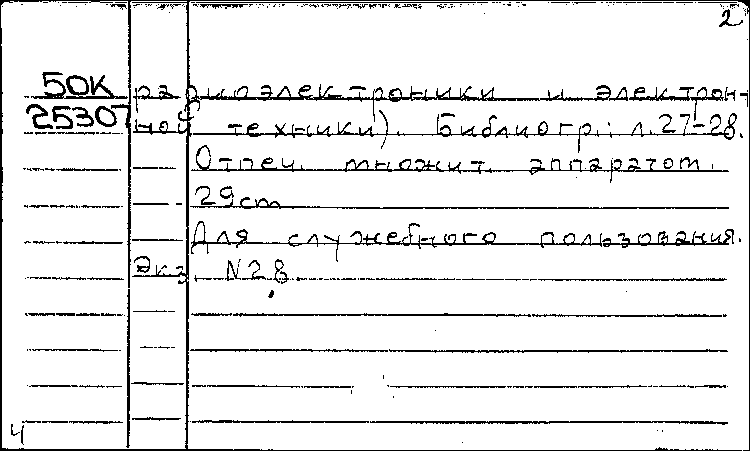 2
50К радиоэлектроники и электрон-
25307 ной техники). Библиогр.: л.27-28.
Отпеч. множит. аппаратом.
29cm
Для служебного пользования.
Экз. N28.
Ч